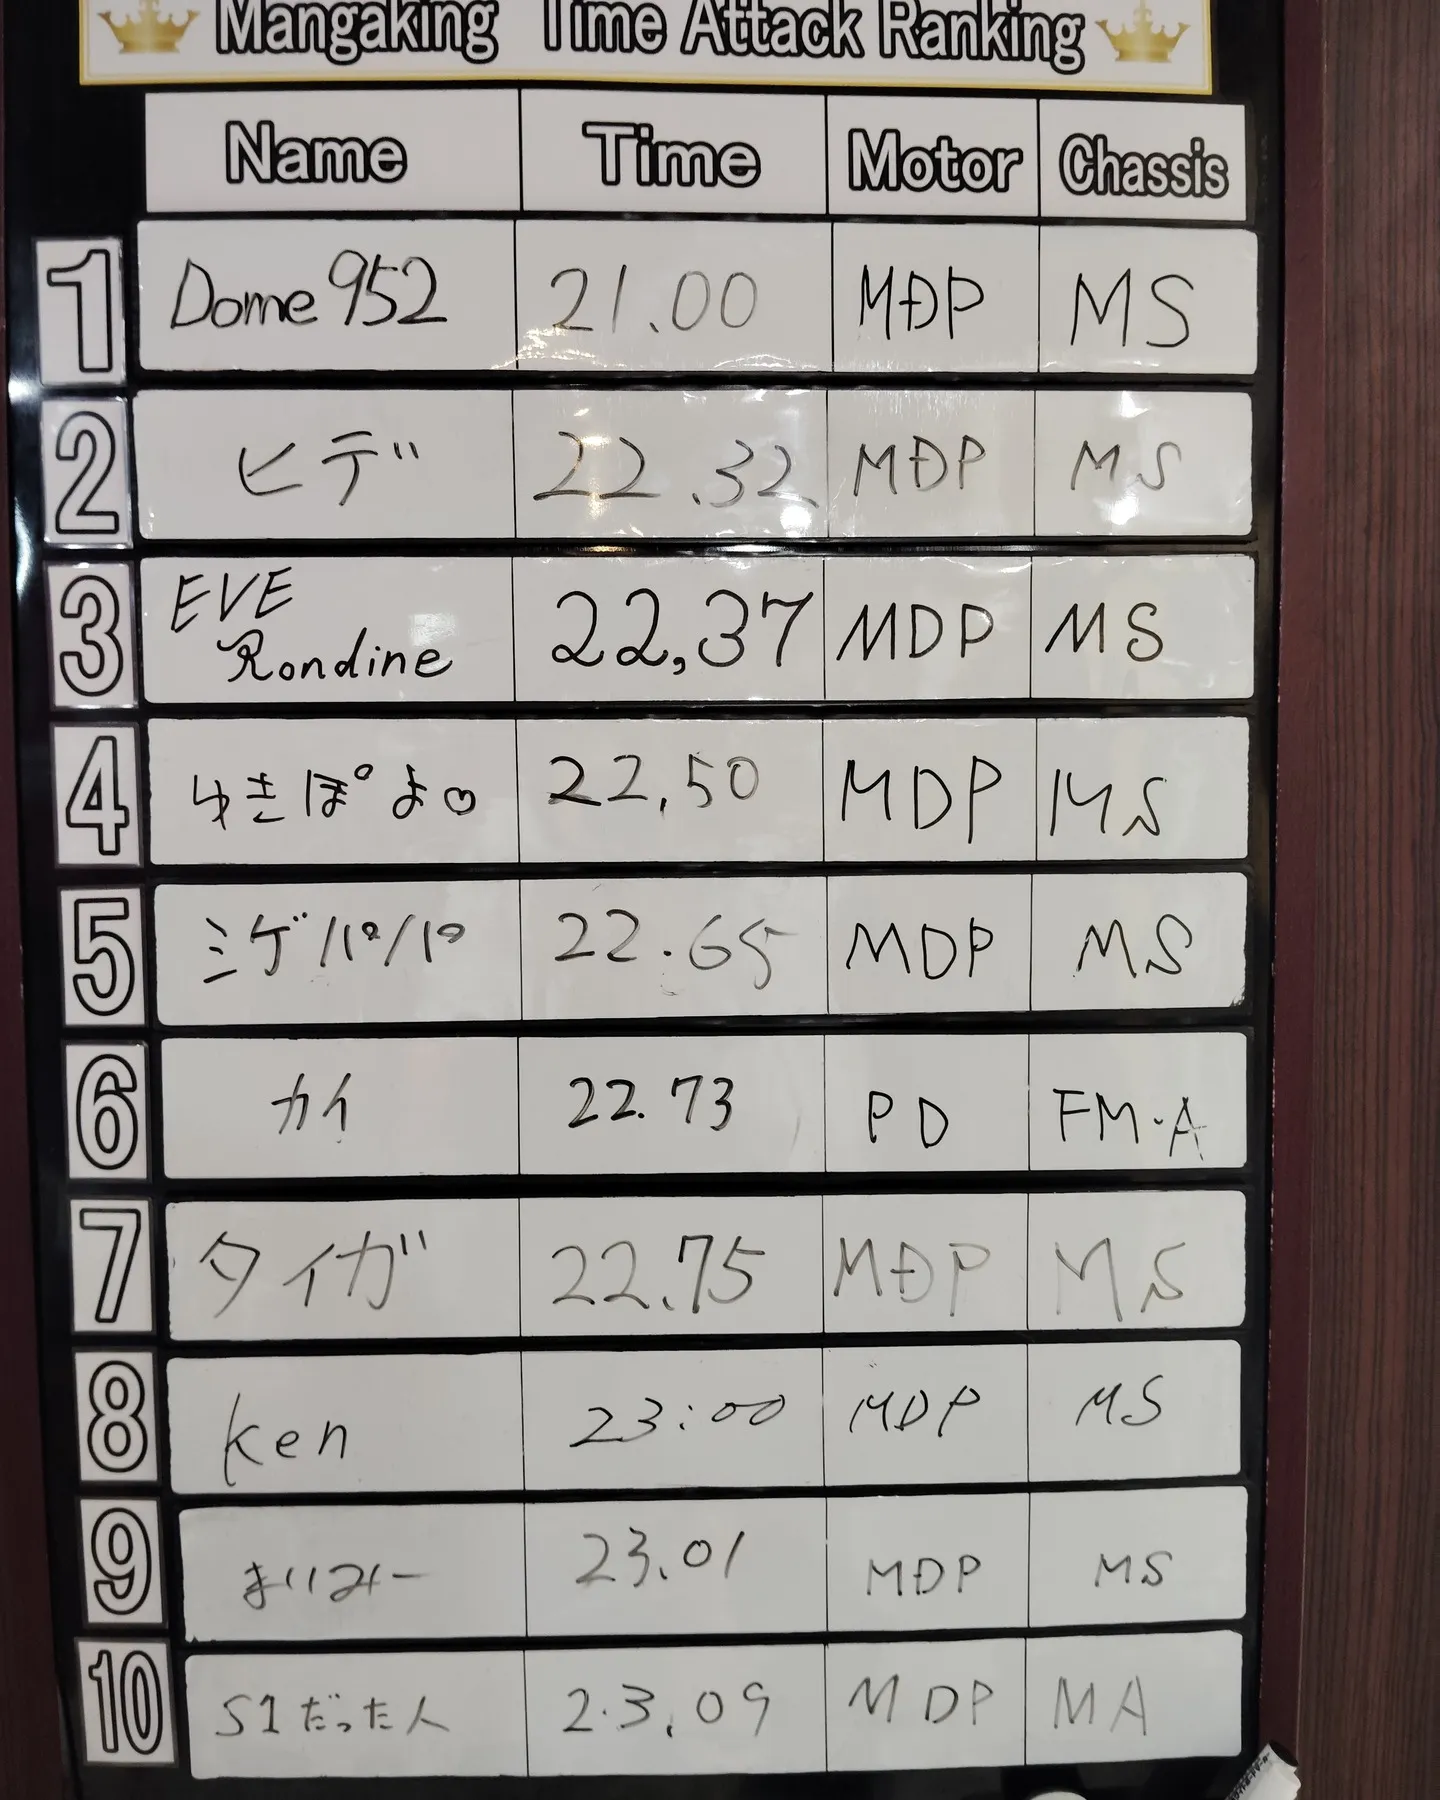 Mangaking Time Attack Ranking
Name Time Motor Chassis
1 Dome952 21.00 MDP MS
2 ヒデ 22.32 MDP MS
3 EVE Rondine 22,37 MDP MS
4 ゆきぽよ♡ 22,50 MDP MS
5 ミゲパパ 22.65 MDP MS
6 カイ 22.73 PD FM-A
7 タイガ 22.75 MDP MS
8 ken 23:00 MDP MS
9 まいみー 23.01 MDP MS
10 S1だった人 23.09 MDP MA